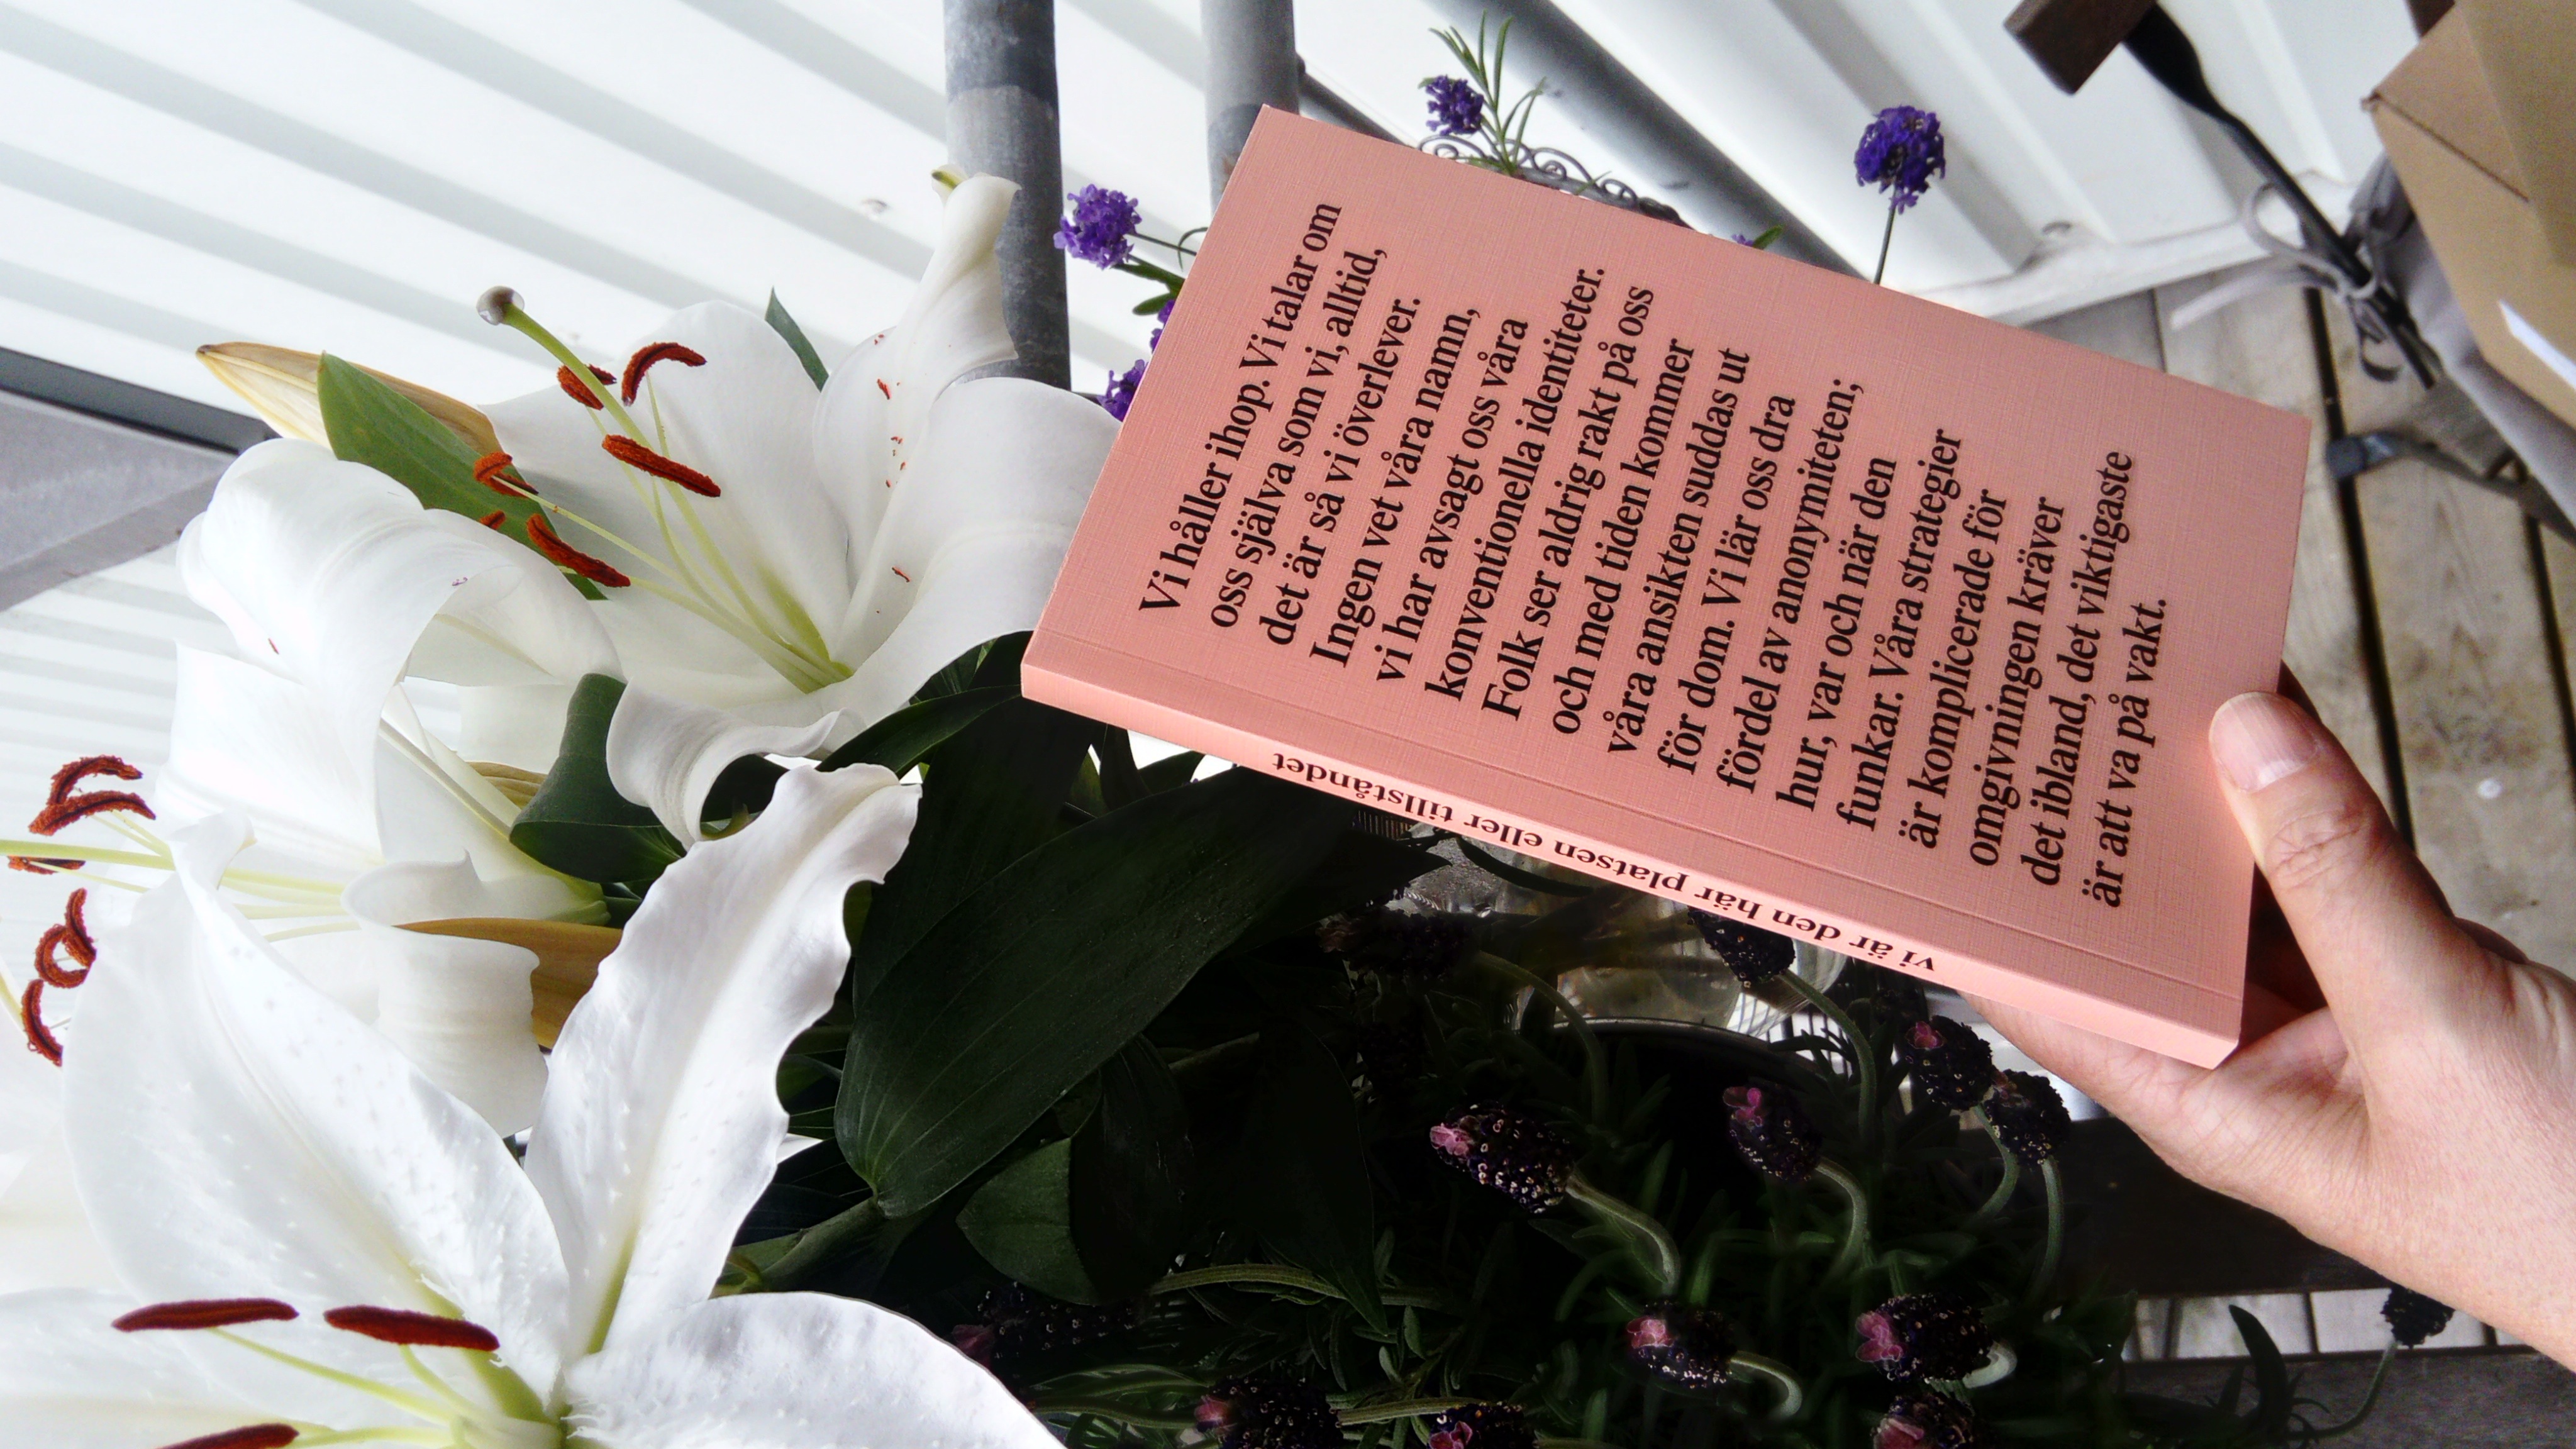 Vi håller ihop. Vi talar om
oss själva som vi, alltid,
det är så vi överlever.
Ingen vet våra namn,
vi har avsagt oss våra
konventionella identiteter.
Folk ser aldrig rakt på oss
och med tiden kommer
våra ansikten suddas ut
för dom. Vi lär oss dra
fördel av anonymiteten;
hur, var och när den
funkar. Våra strategier
är komplicerade för
omgivningen kräver
det ibland, det viktigaste
är att va på vakt.
vi är den här platsen eller tillståndet